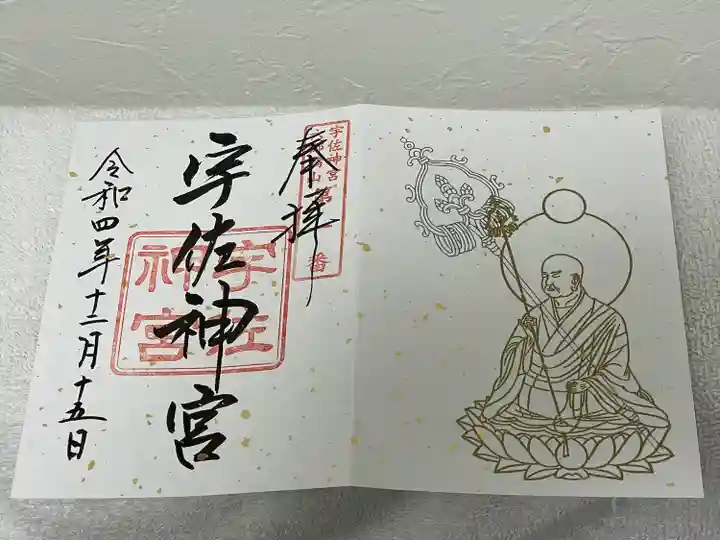 奉拝
宇佐神宮
宇佐神宮
令和四年十二月十五日
宇佐神宮